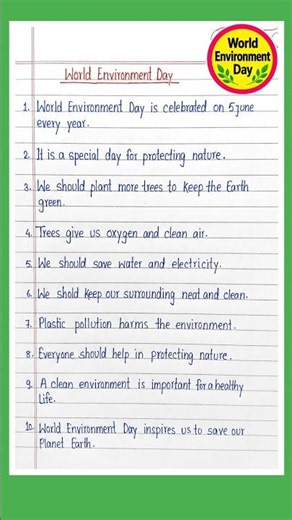 World
Environment
Day
World Environment Day
1. World Environment Day is celebrated on 5 june
every year.
2. It is a special day for protecting nature.
3. We should plant more trees to keep the Earth
green.
4. Trees give us oxygen and clean air.
5. We should save water and electricity.
6. We shold keep our surrounding neat and clean.
7. Plastic pollution harms the environment.
8. Everyone should help in protecting nature.
9. A clean environment is important for a healthy
life.
10. World Environment Day inspires us to save our
Planet Earth.